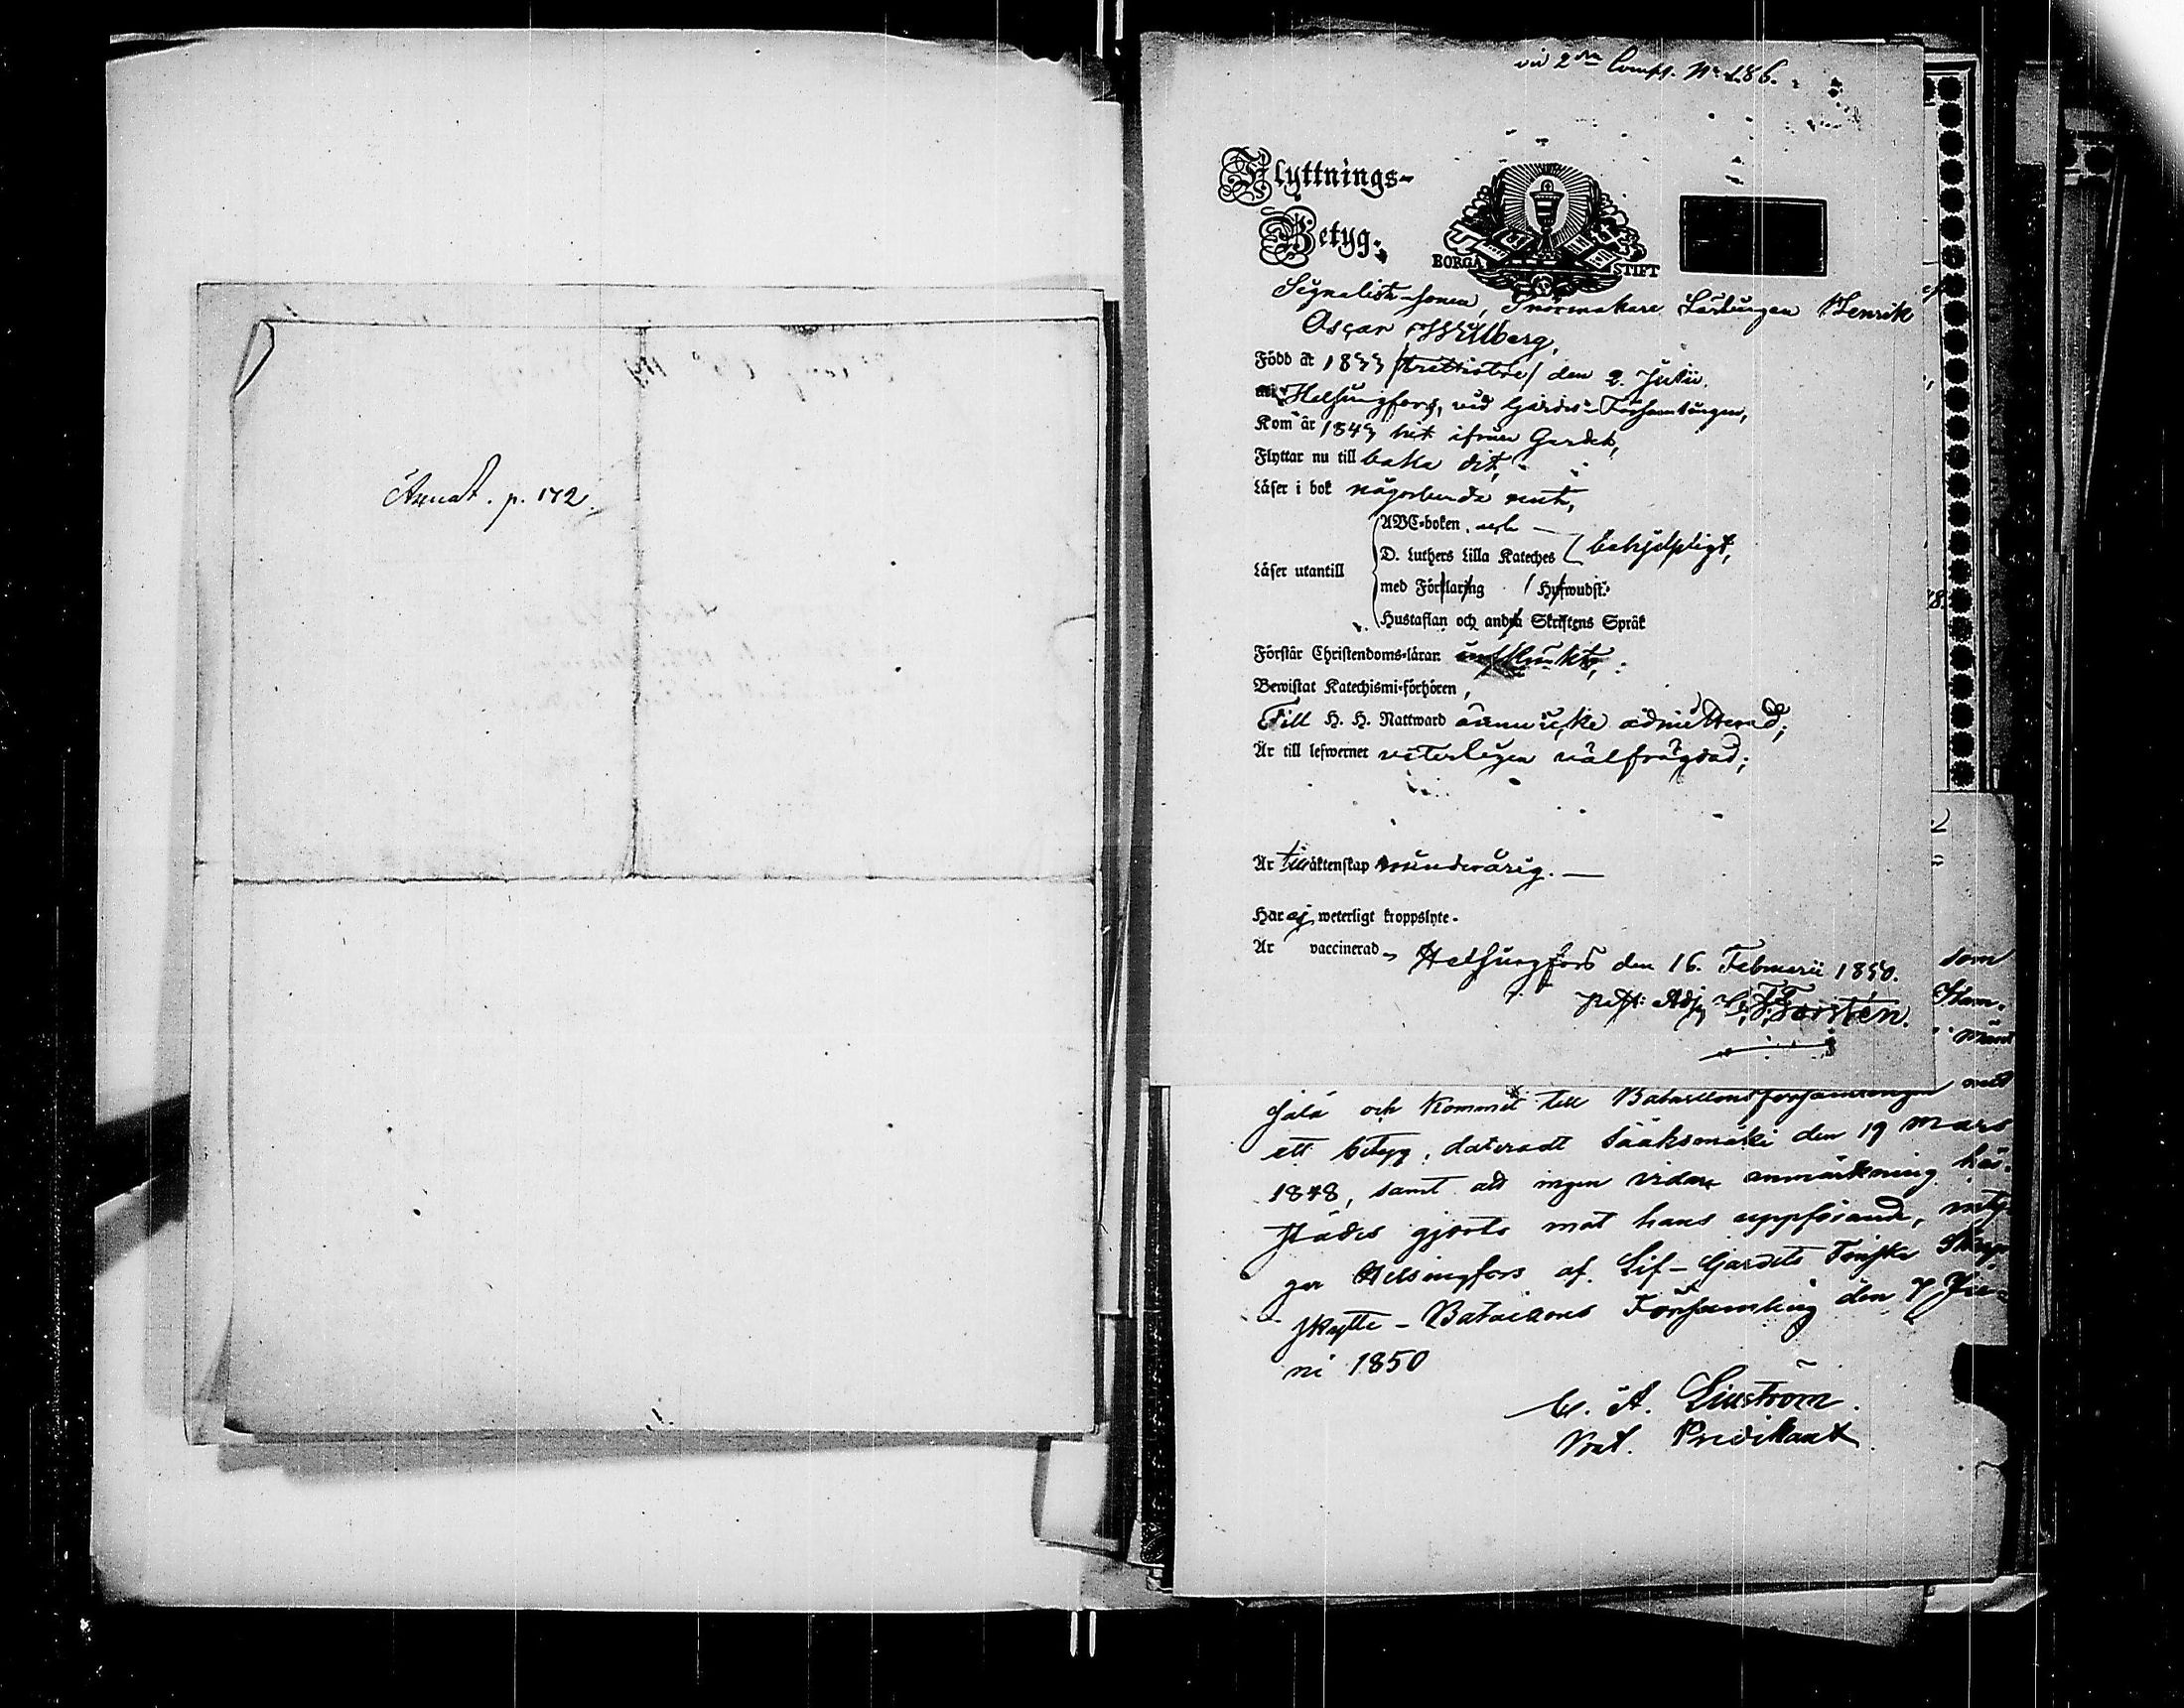 Annot. p. 172.
vid 2dra Comp. No 186.
Flyttnings-
Betyg.
BORGÅ STIFT
Signalist-sonen, Snörmakare Lärlingen Henrik
Oscar Willberg,
Född år 1833 /trettiotre/ den 2. Julii.
i Helsingfors, vid Gardes-Församlingen,
Kom år 1843 hit ifrån Gardet,
Flyttar nu till baka dit,
Läser i bok någorlunda rent,
Läser utantill
ABC-boken, och
D. Luthers Lilla Kateches behjelpligt,
med Förklaring Hufwudst.
Hustaflan och andra Skriftens Språk
Förstår Christendoms-läran
Bewistat Katechismi-förhören,
Till H. H. Nattward ännu icke admitterad;
Är till lefwernet veterligen välfrägdad;
Är till äktenskap minderårig. —
Har ej weterligt kroppslyte.
Är vaccinerad, Helsingfors den 16. Februarii 1850.
Past: Adj. Forstén.
som
mant
sala och kommit till Bataillonsförsamlingen med
ett betyg, dateradt Sääksmäki den 19 Mars
1848, samt att ingen vidare anmärkning här-
städes gjorts mot hans uppförande, inty-
gar Helsingfors af Lif-Gardets Finska Skarp-
skytte-Bataillons Församling den 7 Ju-
ni 1850
C. A. Liuström.
Bat. Predikant.